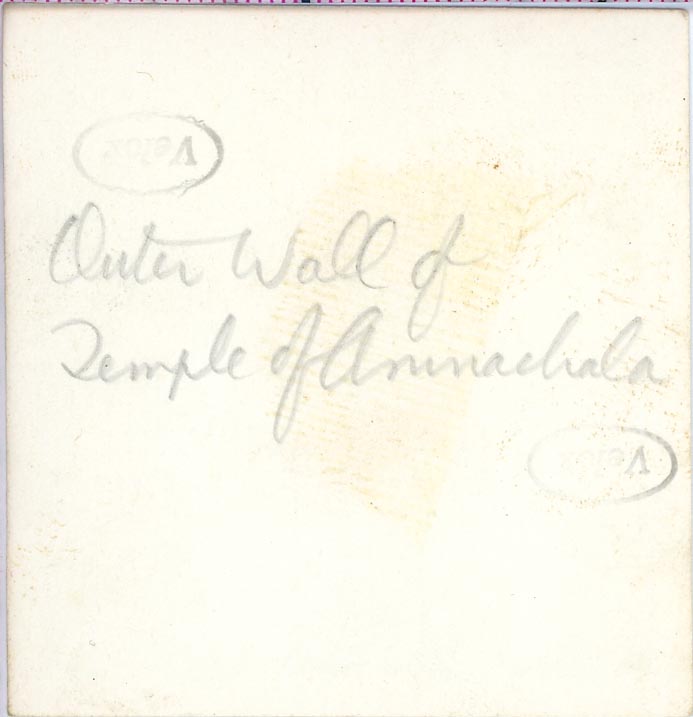 Velox
Outer Wall of
Temple of Arunachala
Velox